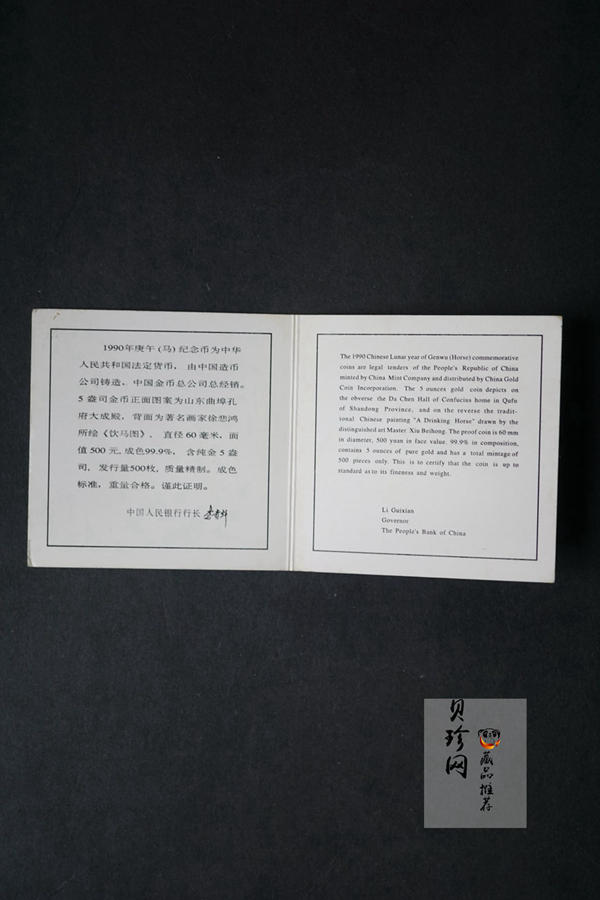 1990年庚午(马)纪念币为中华
人民共和国法定货币， 由中国造币
公司铸造，中国金币总公司总经销。
5 盎司金币正面图案为山东曲埠孔
府大成殿，背面为著名画家徐悲鸿
所绘《饮马图》， 直径60毫米，面
值500元，成色99.9%， 含纯金5盎
司，发行量500枚，质量精制。成色
标准，重量合格。谨此证明。
中国人民银行行长
The 1990 Chinese Lunar year of Genwu (Horse) commemorative
coins are legal tenders of the People's Republic of China
minted by China Mint Company and distributed by China Gold
Coin Incorporation. The 5 ounces gold coin depicts on
the obverse the Da Chen Hall of Confucius home in Qufu
of Shandong Province, and on the reverse the tradit-
ional Chinese painting "A Drinking Horse" drawn by the
distinguished art Master Xiu Beihong. The proof coin is 60 mm
in diameter, 500 yuan in face value. 99.9% in composition,
contains 5 ounces of pure gold and has a total mintage of
500 pieces only. This is to certify that the coin is up to
standard as to its fineness and weight.
Li Guixian
Governor
The People's Bank of China
贝珍网
藏品推荐